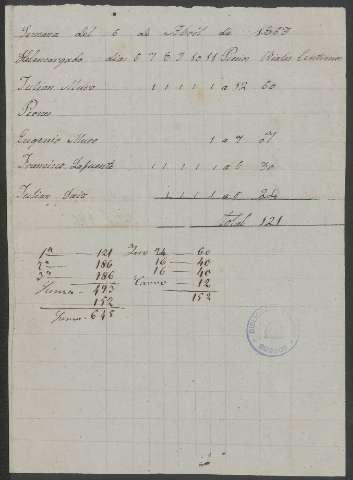 Semana del 6 de Abril de 1863
El encargado dias 6 7 8 9 10 11 Precio Reales Centimos
Julian Muro 1 1 1 1 1 a 12 60
Peones
Eugenio Muro 1 a 7 07
Francisco Lafuente 1 1 1 1 1 a 6 30
Julian 1 1 1 1 a 6 24
total 121
1ª — 121 24 — 60
2ª — 186 16 — 40
3ª — 186 16 — 40
Suma - 493 Carro — 12
152 152
Suma - 645
BURGOS